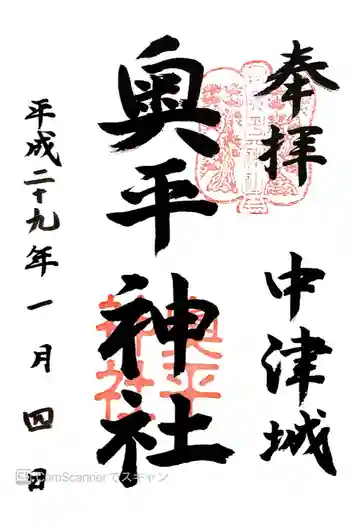 奉拝
中津城
奥平神社
奥平
神社
平成二十九年一月四日
CamScannerでスキャン